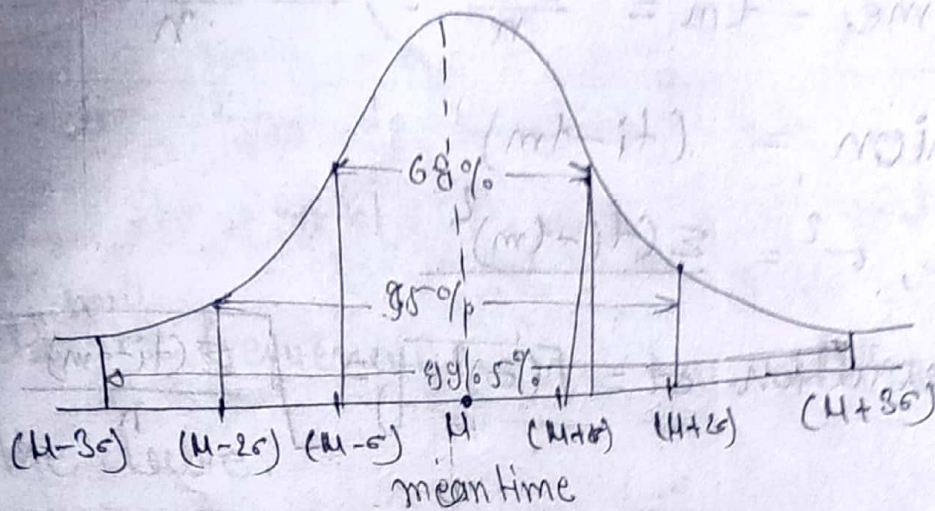 68%
95%
99.5%
(μ-3σ) (μ-2σ) (μ-σ) μ (μ+σ) (μ+2σ) (μ+3σ)
mean time